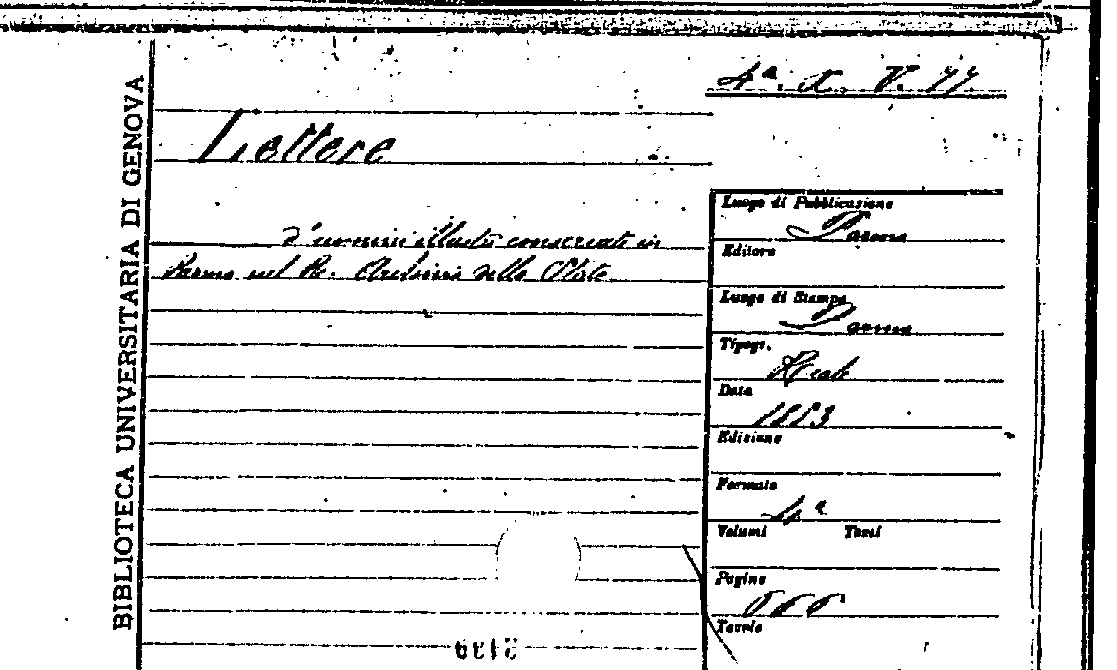 BIBLIOTECA UNIVERSITARIA DI GENOVA
4ª. X. V. 77
Lettere
d'uomini illustri conservate in
Parma nel R. Archivio dello Stato
Luogo di Pubblicazione
Parma
Editore
Luogo di Stampa
Parma
Tipogr.
Reale
Data
1853
Edizione
Formato
4ª
Volumi Tomi
Pagine
Tavole